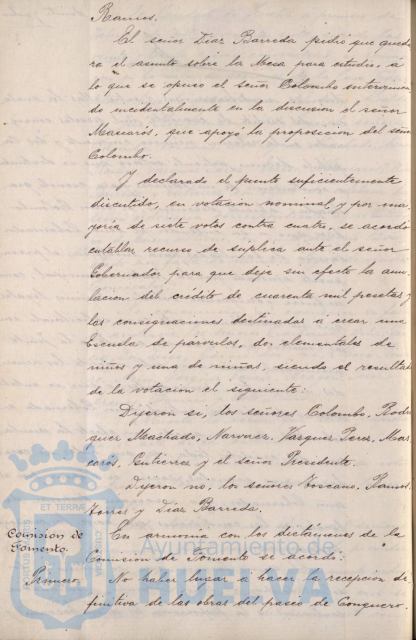 Ramos.
El señor Diaz Barreda pidió que queda
ra el asunto sobre la Mesa para estudio, á
lo que se opuso el señor Colombo intervinien
do incidentalmente en la discusion el señor
Mascarós, que apoyó la proposicion del señor
Colombo.
Y declarado el punto suficientemente
discutido, en votación nominal, y por ma
yoría de siete votos contra cuatro, se acordó
entablar recurso de súplica ante el señor
Gobernador para que deje sin efecto la anu
lacion del crédito de cuarenta mil pesetas y
las consignaciones destinadas á crear una
Escuela de párvulos, dos elementales de
niños y una de niñas, siendo el resultado
de la votacion el siguiente:
Dijeron si, los señores Colombo, Rodri
guez Machado, Narvaez, Vazquez Perez, Mas
carós, Gutierrez y el señor Presidente.
Dijeron no, los señores Toscano, Ramos,
Torres y Diaz Barreda.
Comision de
Fomento.
En armonia con los dictámenes de la
Comision de Fomento se acordó:
Primero.
No haber lugar á hacer la recepcion de
finitiva de las obras del paseo de Conquero.
ET TERRÆ
Ayuntamiento de
HUELVA